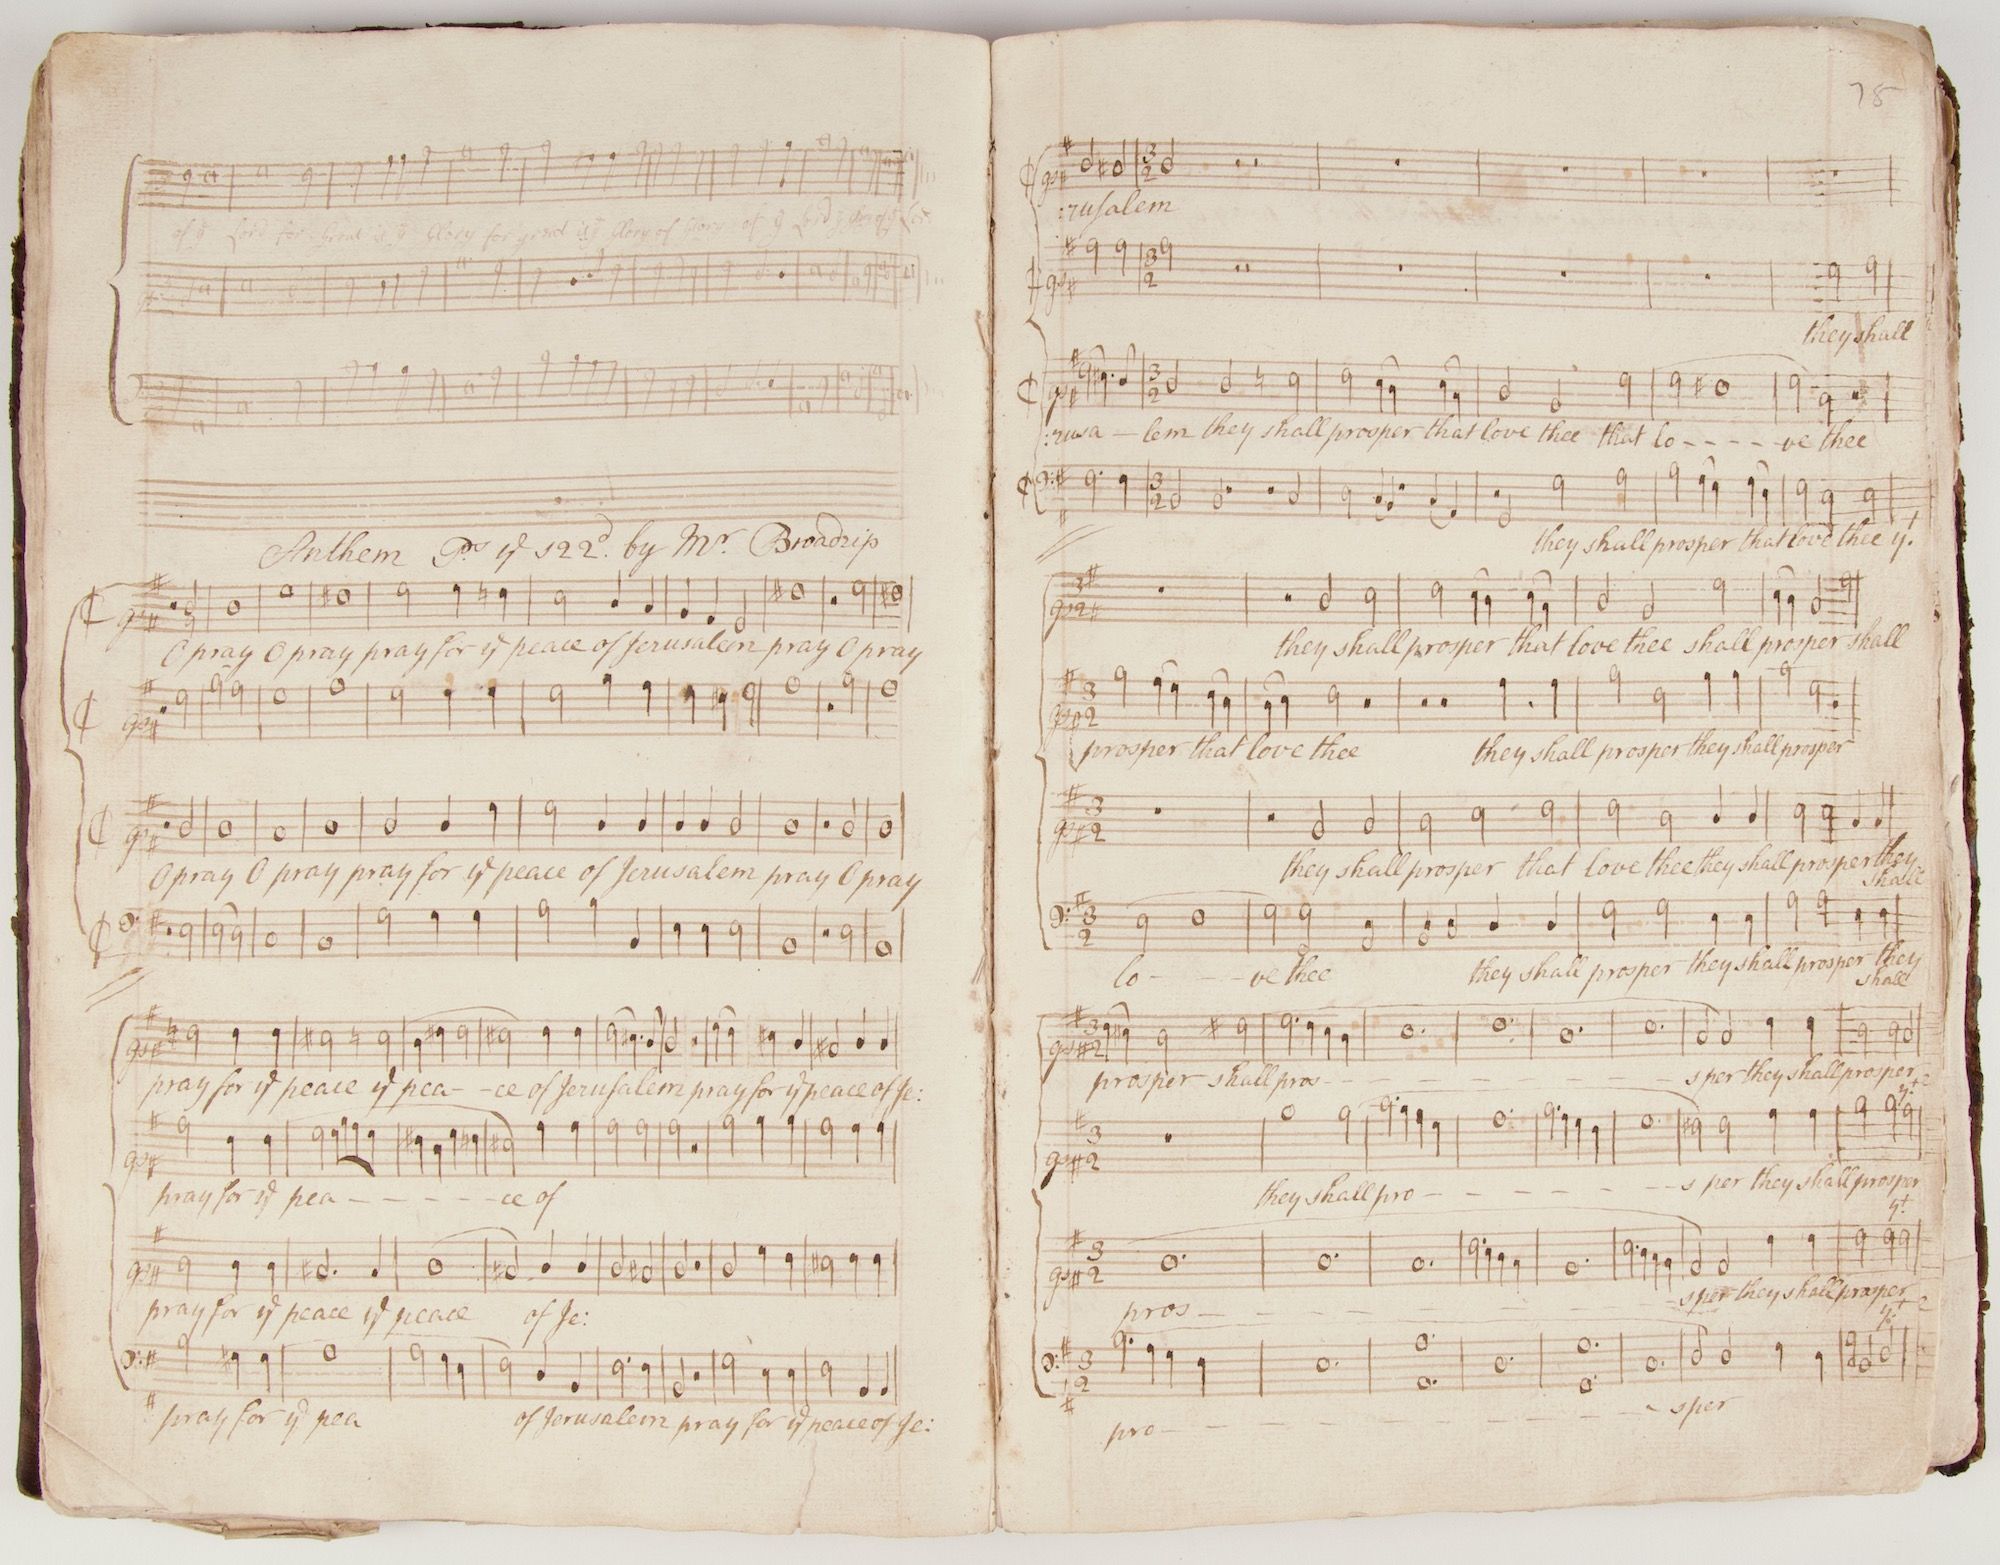 of ye Lord for great is ye Glory for great is ye Glory of Glory of ye Lord
Anthem Ps ye 122d. by Mr. Broadrip
O pray O pray pray for ye peace of Jerusalem pray O pray
O pray O pray pray for ye peace of Jerusalem pray O pray
pray for ye peace ye pea- -ce of Jerusalem pray for ye peace of Je:
pray for ye pea - - - - - -ce of
pray for ye peace ye peace of Je:
pray for ye pea of Jerusalem pray for ye peace of Je:
78
:rusalem
they shall
:rusa - lem they shall prosper that love thee that lo - - - - - ve thee
they shall prosper that love thee yt
they shall prosper that love thee shall prosper shall
prosper that love thee they shall prosper they shall prosper
they shall prosper that love thee they shall prosper they shall
lo - - - ve thee they shall prosper they shall prosper they shall
prosper shall pros - - - - - - - - - sper they shall prosper yt
they shall pro - - - - - - - sper they shall prosper yt
pros - - - - - - - - - - sper they shall prosper yt
pro - - - - - - - - - - sper